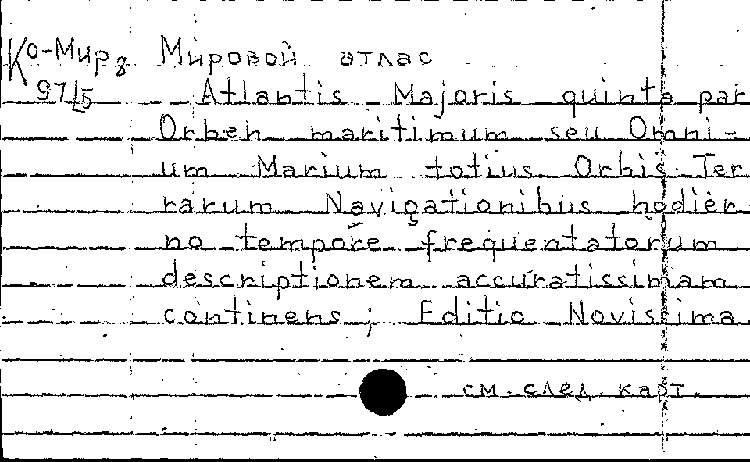 Ко-Мир 8 Мировой атлас
9715 Atlantis Majoris quinta par
Orbeh maritimum seu Omni-
um Marium totius Orbis Ter
rarum Navigationibus hodier
no tempore frequentatorum
descriptionem accuratissimam
continens; Editio Novissima
см. след. карт